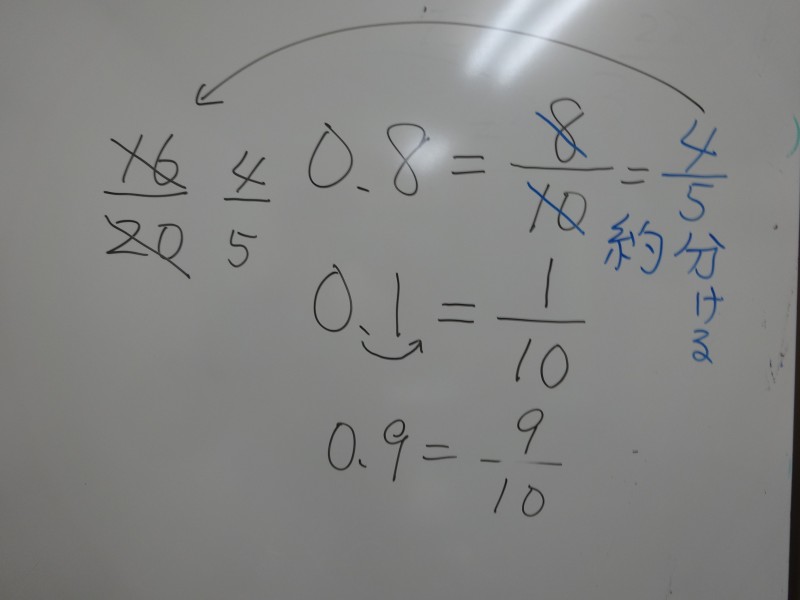 16/20 4/5 0.8 = 8/10 = 4/5
約分ける
0.1 = 1/10
0.9 = 9/10